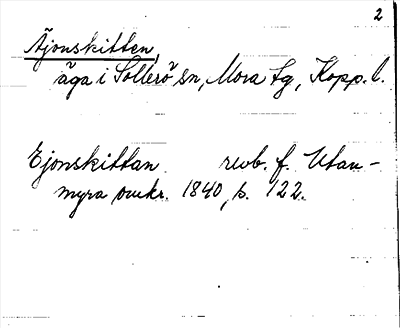 2
Äjonskitten,
äga i Sollerö sn, Mora tg, Kopp. l.
Ejonskittan revb. f. Utan-
myra omkr. 1840, s. 122.